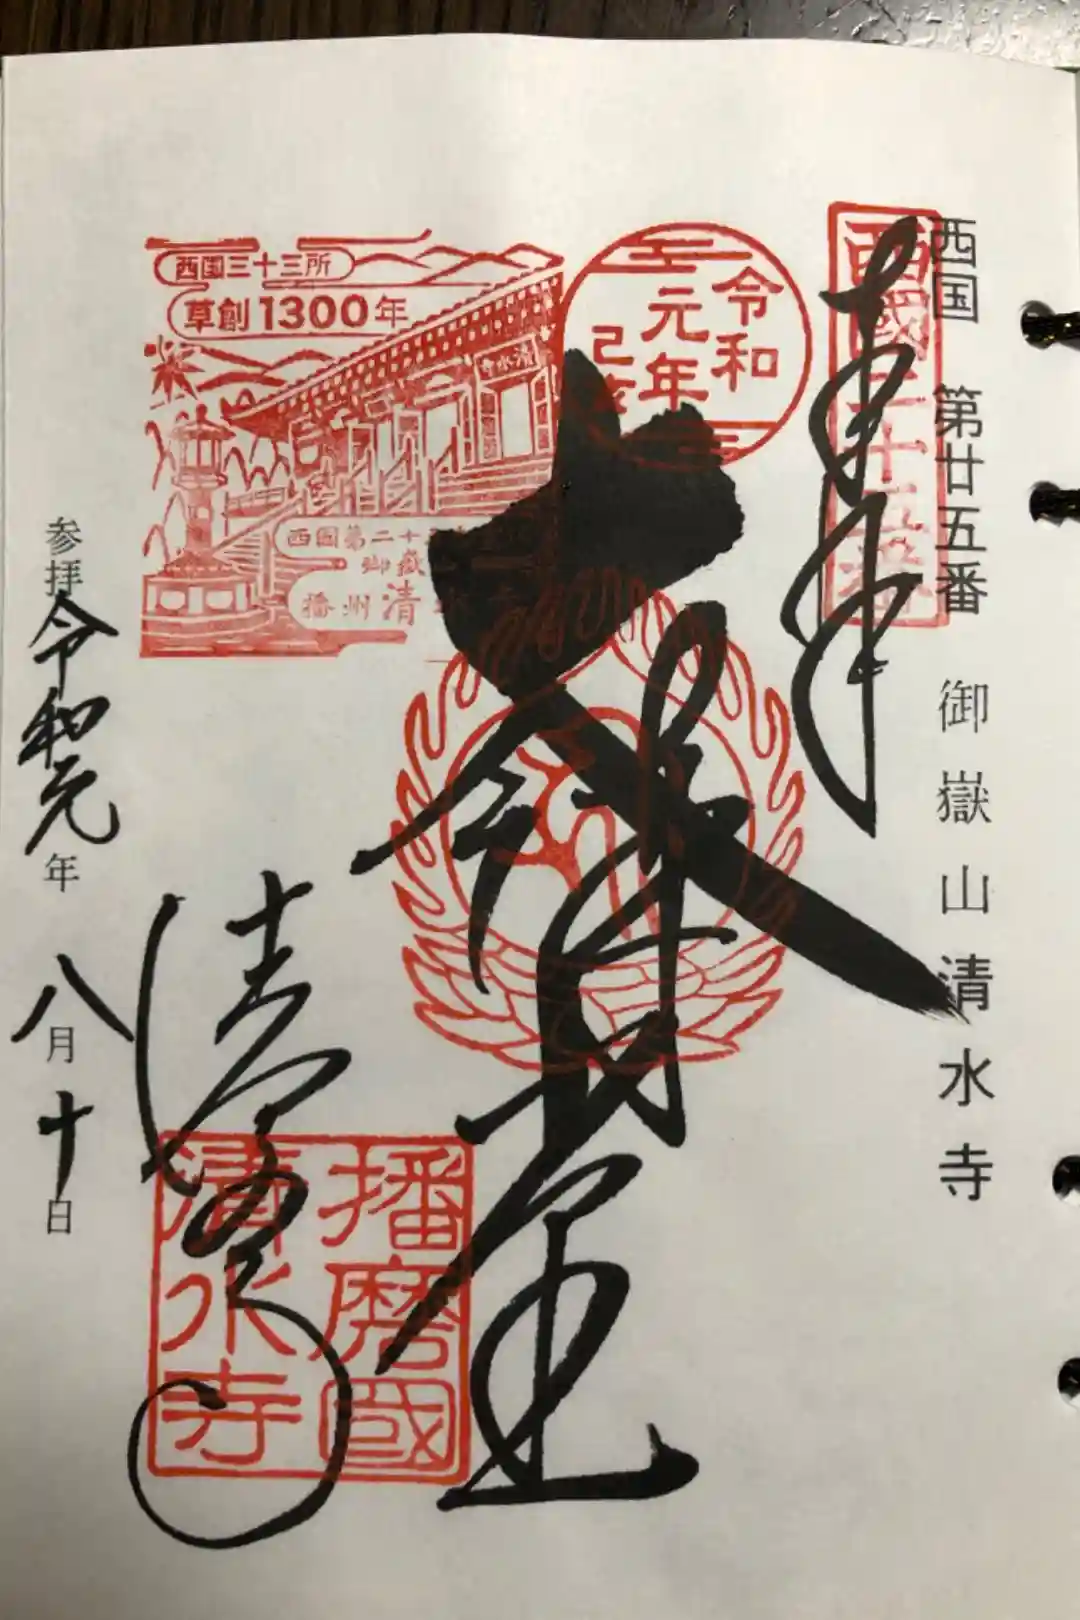 西国 第廿五番 御嶽山清水寺
奉拝
西國二十五番
令和
元年
己亥
西国三十三所
草創1300年
清水寺
西国第二十
御嶽
播州 清水寺
大悲殿
清水寺
播磨國
清水寺
参拝 令和元年 八月十日